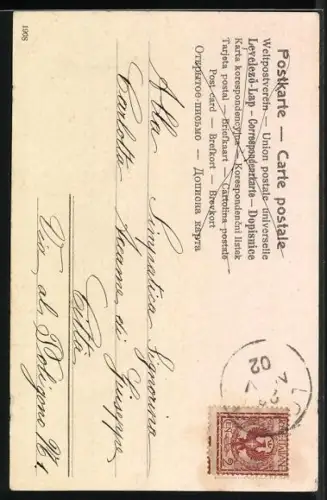 Postkarte — Carte postale
Weltpostverein — Union postale universelle
Levelező-Lap — Correspondenzkarte — Dopisnice
Karta korespondencyjna — Korespondenční lístek
Tarjeta postal — Briefkaart — Cartolina postale
Post card — Brefkort — Brevkort
Открытое письмо — Дописна карта
Alla Simpatica Signorina
Carlotta Accame di Giuseppe
Città
Via al Poligono N. 1
1968
02